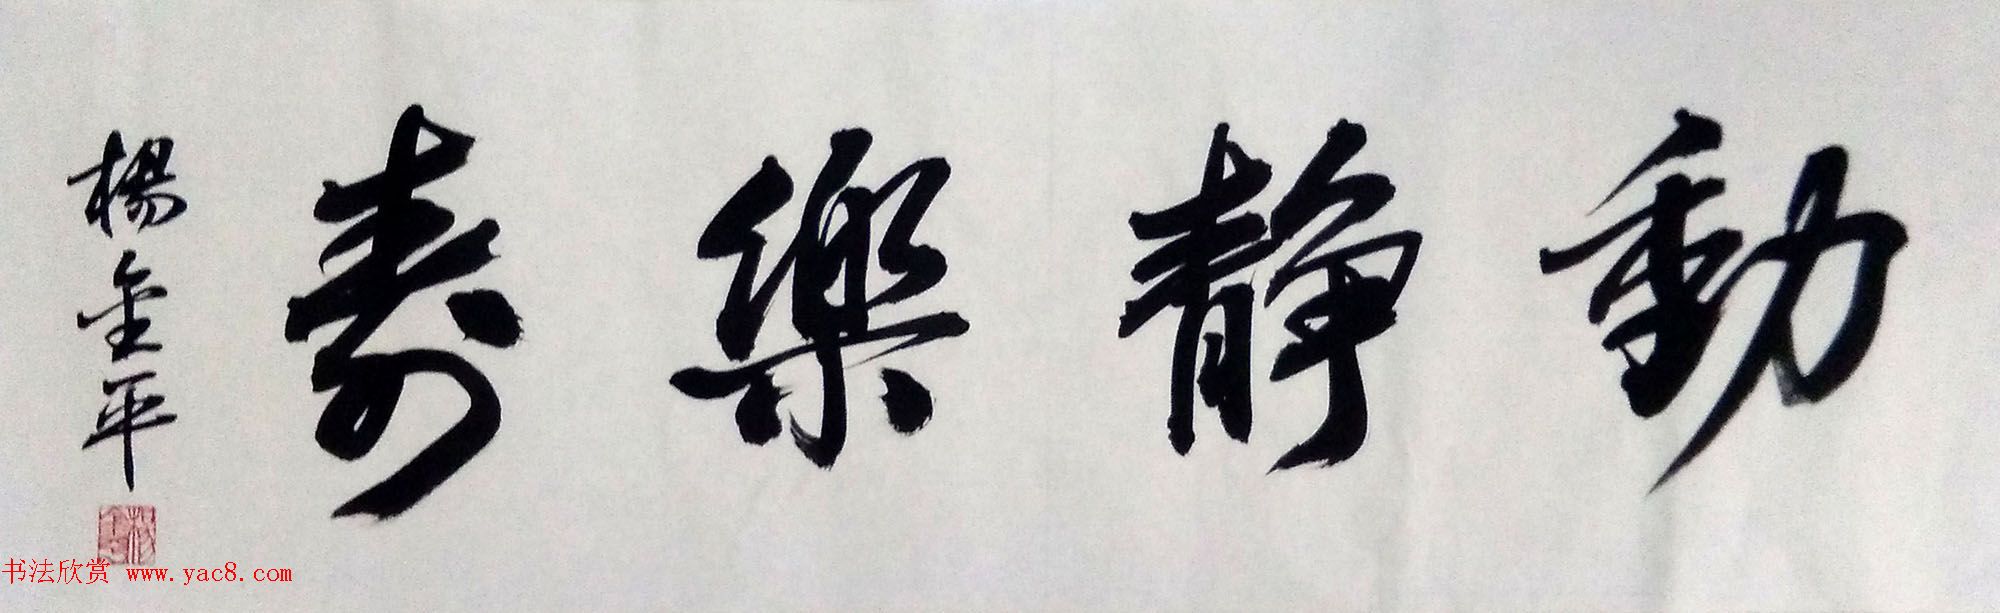 動靜樂壽
楊金平
书法欣赏 www.yac8.com